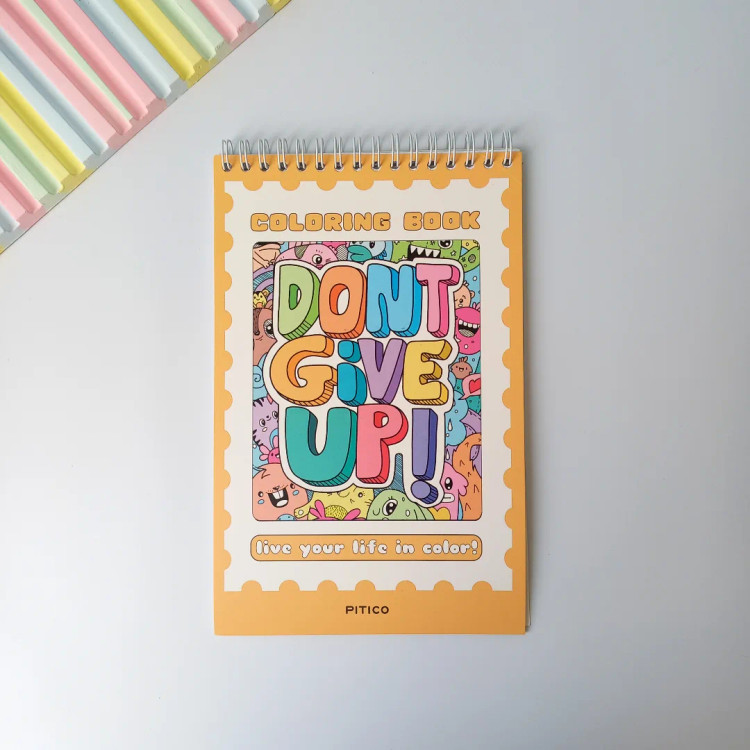 COLORING BOOK
DONT
GiVE
UP!
live your life in color!
PITICO